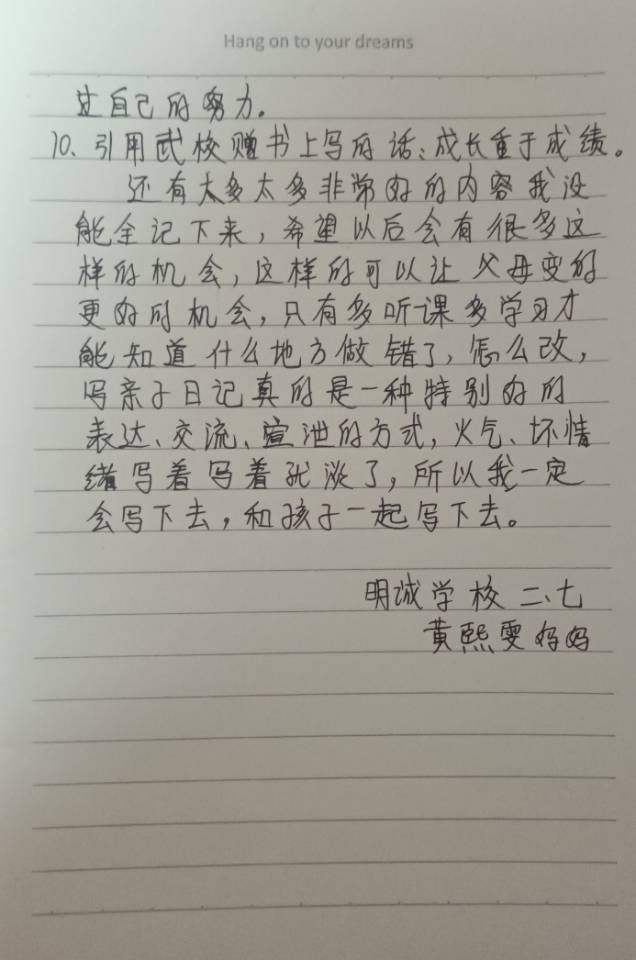 Hang on to your dreams
过自己的努力。
10、引用武校赠书上写的话：成长重于成绩。
还有太多太多非常好的内容我没
能全记下来，希望以后会有很多这
样的机会，这样的可以让父母变的
更好的机会，只有多听课多学习才
能知道什么地方做错了，怎么改，
写亲子日记真的是一种特别好的
表达、交流、宣泄的方式，火气、坏情
绪写着写着就淡了，所以我一定
会写下去，和孩子一起写下去。
明诚学校二、七
黄熙雯妈妈